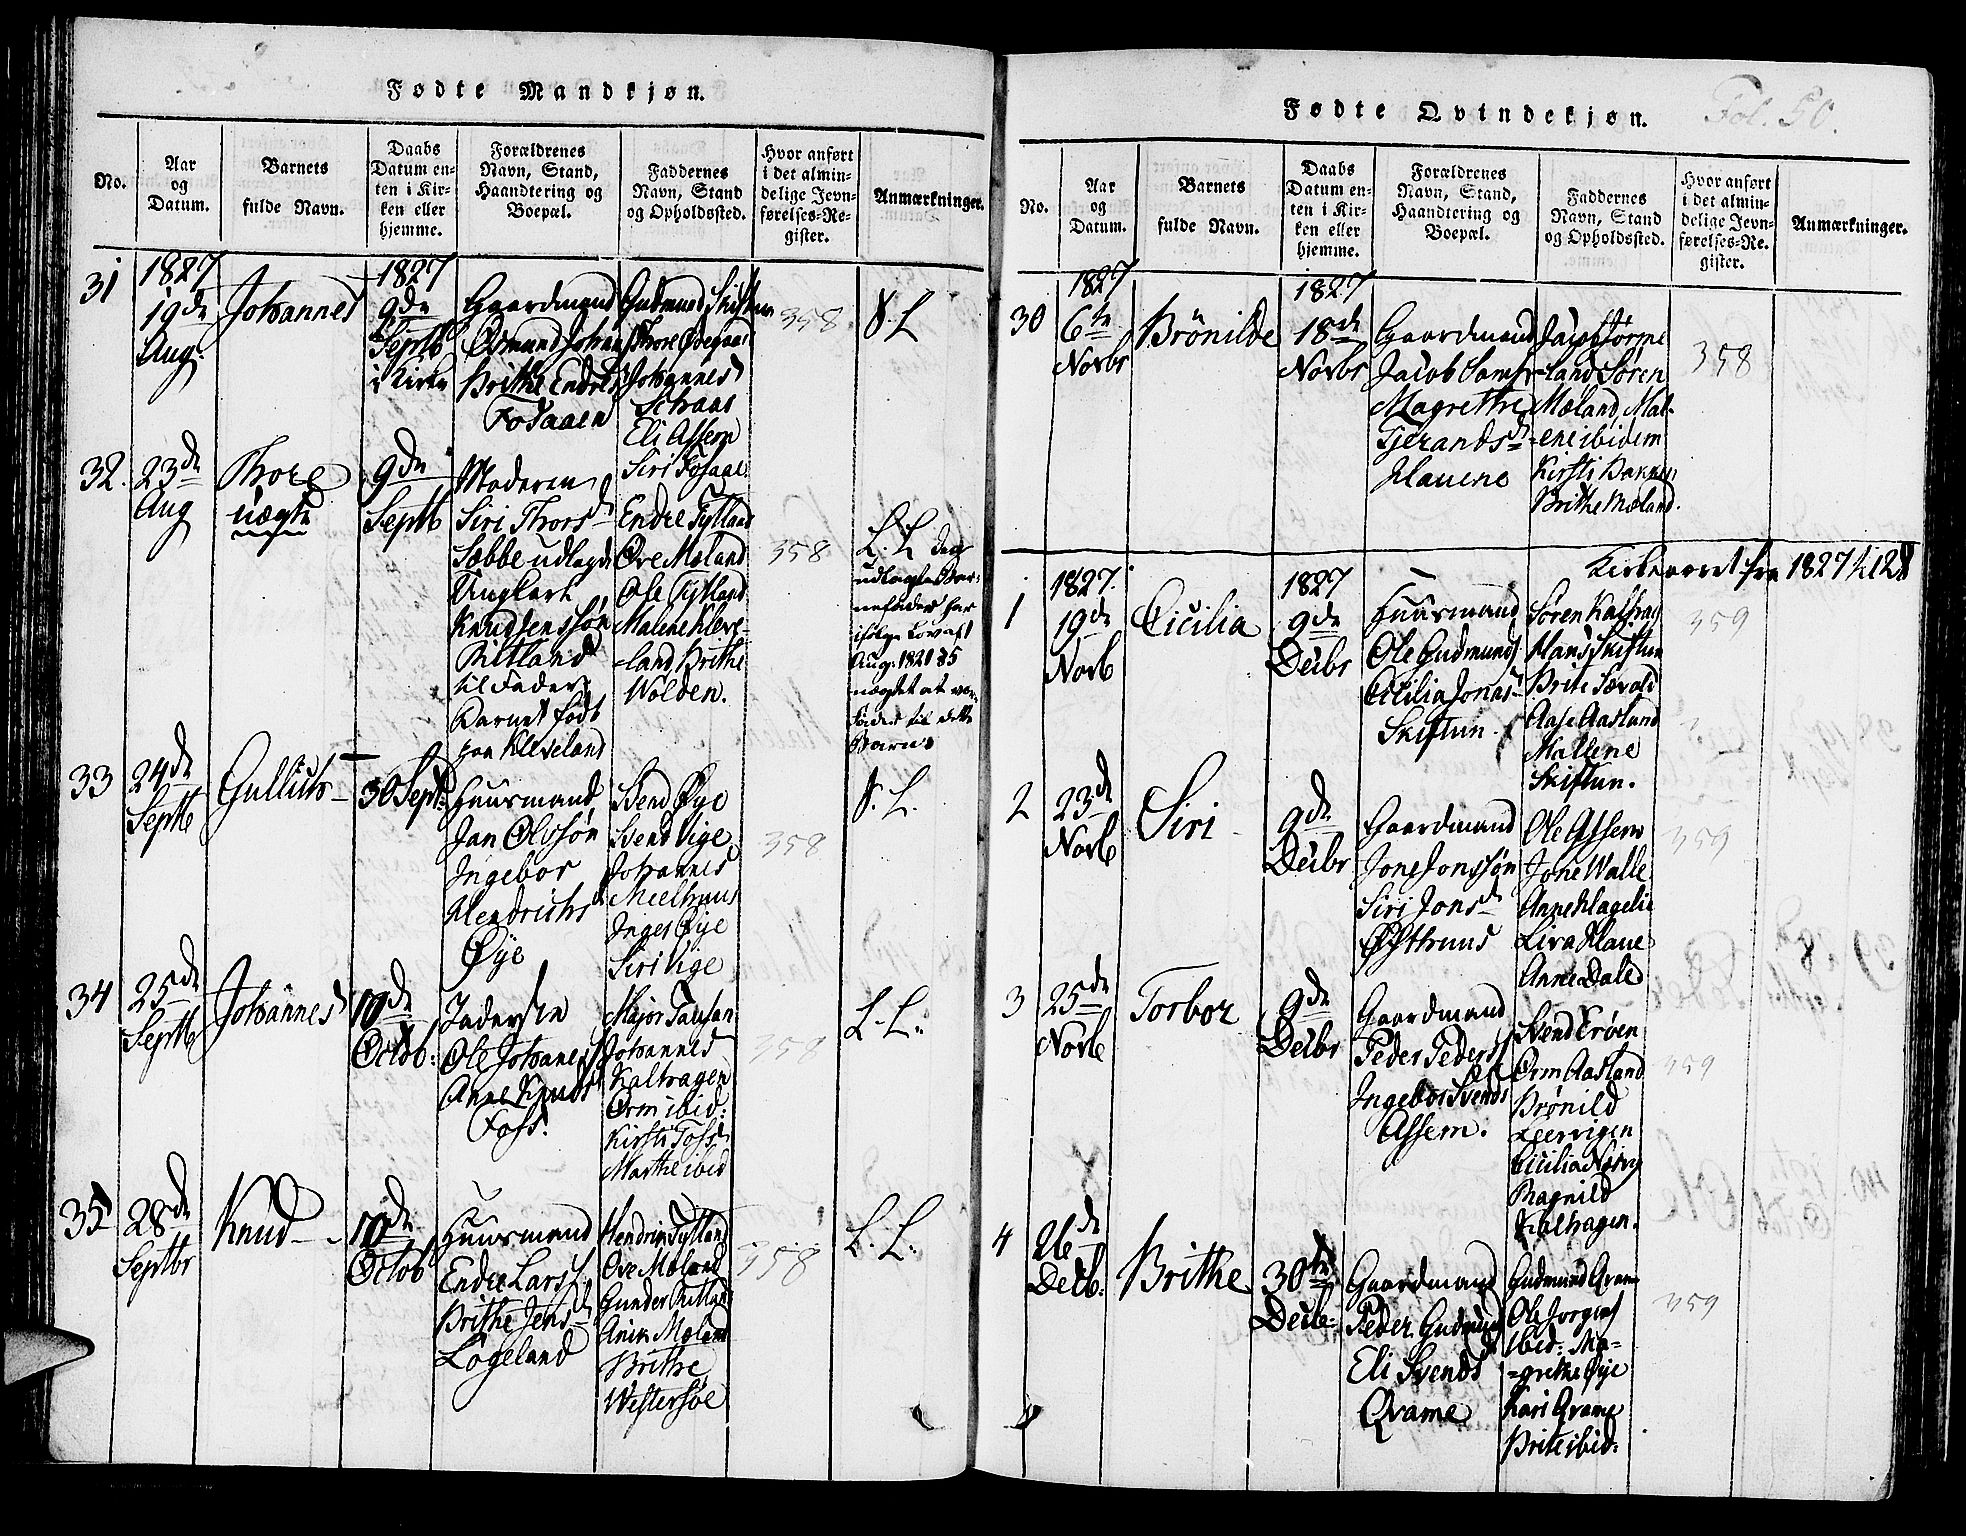 Fødte Mandkjøn.
No.
Aar
og
Datum.
Barnets
fulde Navn.
Daabs
Datum en-
ten i Kir-
ken eller
hjemme.
Forældrenes
Navn, Stand,
Haandtering og
Boepæl.
Faddernes
Navn, Stand
og Opholdssted.
Hvor anført
i det almin-
delige Jevn-
førelses-Re-
gister.
Anmærkninger.
31
1827
19de
Aug:
Johannes
1827
9de
Septb
i Kirke
Gaardmand
Osmund Johans
Brithe Endres
Fosaaen
Gudmund Skiftun
Thore Ødegaar
Johannes
Schaar
Eli Assem
Siri Fosaae
358
32.
23de
Aug
Thore
uægte
9de
Septb
Moderen
Siri Thorsd
Sæbbe udlagde
Ungkarl
Knud Jenssøn
Ritland
til Fader
Barnet født
paa Kleveland
Endre Tytland
Ove Møland
Ole Tytland
Malene Kleve-
-land Brithe
Wolden.
358
L. L den
udlagde Bar-
nefader har
ifølge Lov af
Aug: 1821 § 5
nægtet at være
Fader til dette
Barn
33
24de
Septb
Gullich
30 Sept:
Huusmand
Jan Olvsøn
Ingebor
Hendrichs
Øye
Svend Øye
Svend Vige
Johannes
Meelhuus
Inger Øye
Siri Vige
358
34
25de
Septb
Johannes
10de
Octob:
Ole Johanes
Anne Knuds
Foss.
Johannes
Kalhagen
Orm ibid:
Kirsti Foss
Marthe ibid
358
L. L.
35
28de
Septbr
Knud
10de
Octob
Huusmand
Endre Lars
Brithe Jensd
Løgeland
Hendrik Tytland
Ove Møland
Gunder Ritland
Møland
Brithe
Westersøe
358
L. L.
Fødte Qvindekjøn.
Fol. 50.
No.
Aar
og
Datum.
Barnets
fulde Navn.
Daabs
Datum en-
ten i Kir-
ken eller
hjemme.
Forældrenes
Navn, Stand,
Haandtering og
Boepæl.
Faddernes
Navn, Stand
og Opholdssted.
Hvor anført
i det almin-
delige Jevn-
førelses-Re-
gister.
Anmærkninger.
30
1827
6te
Novbr
Brønilde
1827
18de
Novbr
Gaardmand
Jacob
Magrethe
Tjerandsd
Hauene
Jacob Jørme
-land Søren
Mæland, Mal-
-ene ibidem
Kirsti Bakken
Brithe Mæland.
358
Kirkeaaret fra 1827 til 28
1
1827.
19de
Novb
Cicilia
1827
9de
Decbr
Huusmand
Ole Gudmunds
Cicilia Jonas
Skiftun.
Søren Kalhag
Hans Skiftun
Brite Særvold
Aase Aasland
Mallene
Skiftun.
359
2
23de
Novb
Siri
9de
Decbr
Gaardmand
Jone Jonssøn
Siri Jonsd
Østhuus
Ole Assem
Jone Walle
Anne Hagelie
Liva Haue
Anne Dale
359
3
25de
Novb
Torbor
9de
Decbr
Gaardmand
Peder Peders
Ingebor Svends
Assem.
Svend Krøen
Orm Aasland
Brønild
Leervigen
Cicilia
Ragnild
Kalhagen.
359
4
26de
Decb:
Brithe
30te
Decb:
Gaardmand
Peder Gudmund
Eli Svends
Qvame
Gudmund Qvame
Ole Jorgens
ibid: Ma-
=grethe Øye
Kari Qvame
Brite ibid:
359